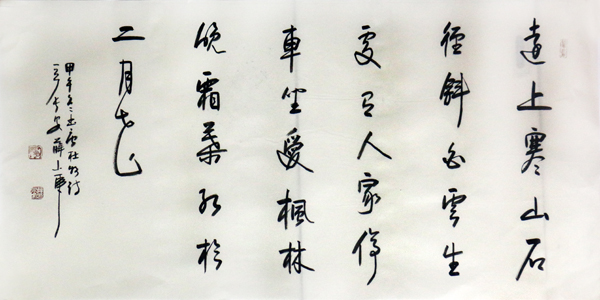 遠上寒山石
徑斜白雲生
處有人家停
車坐愛楓林
晚霜葉紅於
二月花
甲午冬書唐杜牧詩
長安薛